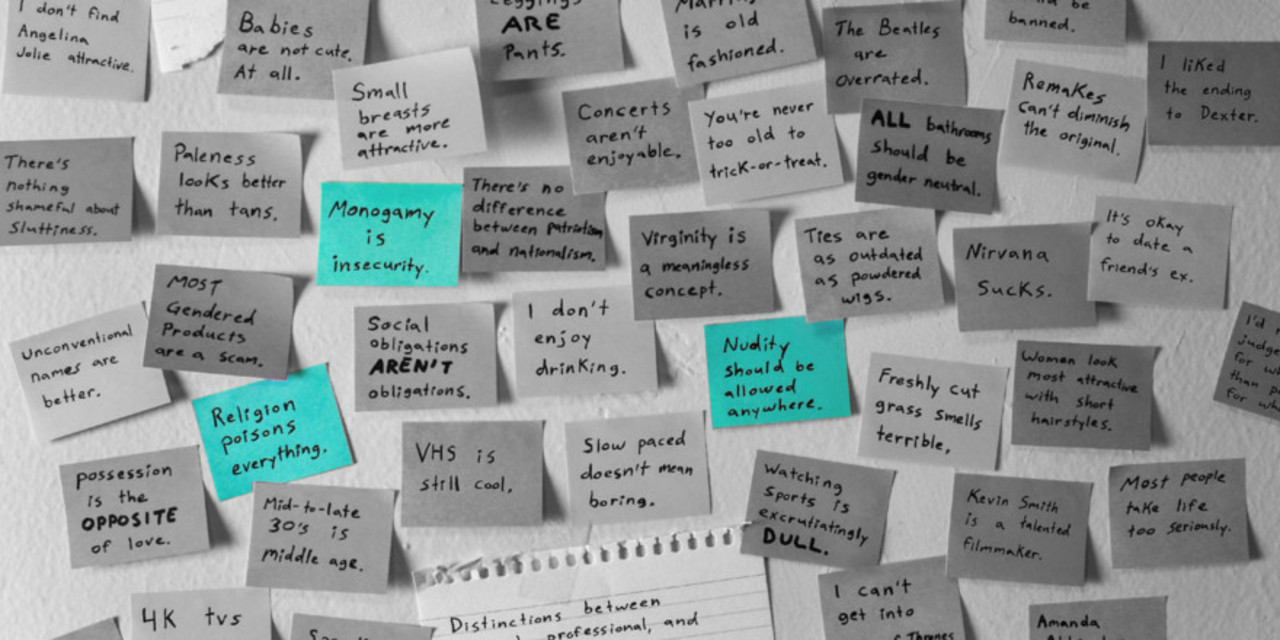 I don't find
Angelina
Jolie attractive.
Babies
are not cute.
At all.
ARE
Pants.
is old
fashioned.
The Beatles
are
overrated.
be
banned.
I liked
the ending
to Dexter.
Small
breasts
are more
attractive.
Concerts
aren't
enjoyable.
You're never
too old to
trick-or-treat.
ALL bathrooms
should be
gender neutral.
Remakes
can't diminish
the original.
There's
nothing
shameful about
Sluttiness.
Paleness
looks better
than tans.
Monogamy
is
insecurity.
There's no
difference
between patriotism
and nationalism.
Virginity is
a meaningless
concept.
Ties are
as outdated
as powdered
wigs.
Nirvana
sucks.
It's okay
to date a
friend's ex.
Unconventional
names are
better.
MOST
Gendered
Products
are a scam.
Social
obligations
AREN'T
obligations.
I don't
enjoy
drinking.
Nudity
should be
allowed
anywhere.
Freshly cut
grass smells
terrible.
Women look
most attractive
with short
hairstyles.
I'd
judge
for
than
for
Religion
poisons
everything.
possession
is the
OPPOSITE
of love.
Mid-to-late
30's is
middle age.
VHS is
still cool.
Slow paced
doesn't mean
boring.
Watching
Sports is
excrutiatingly
DULL.
Kevin Smith
is a talented
filmmaker.
Most people
take life
too seriously.
4K tvs
Distinctions between
professional, and
I can't
get into
Amanda